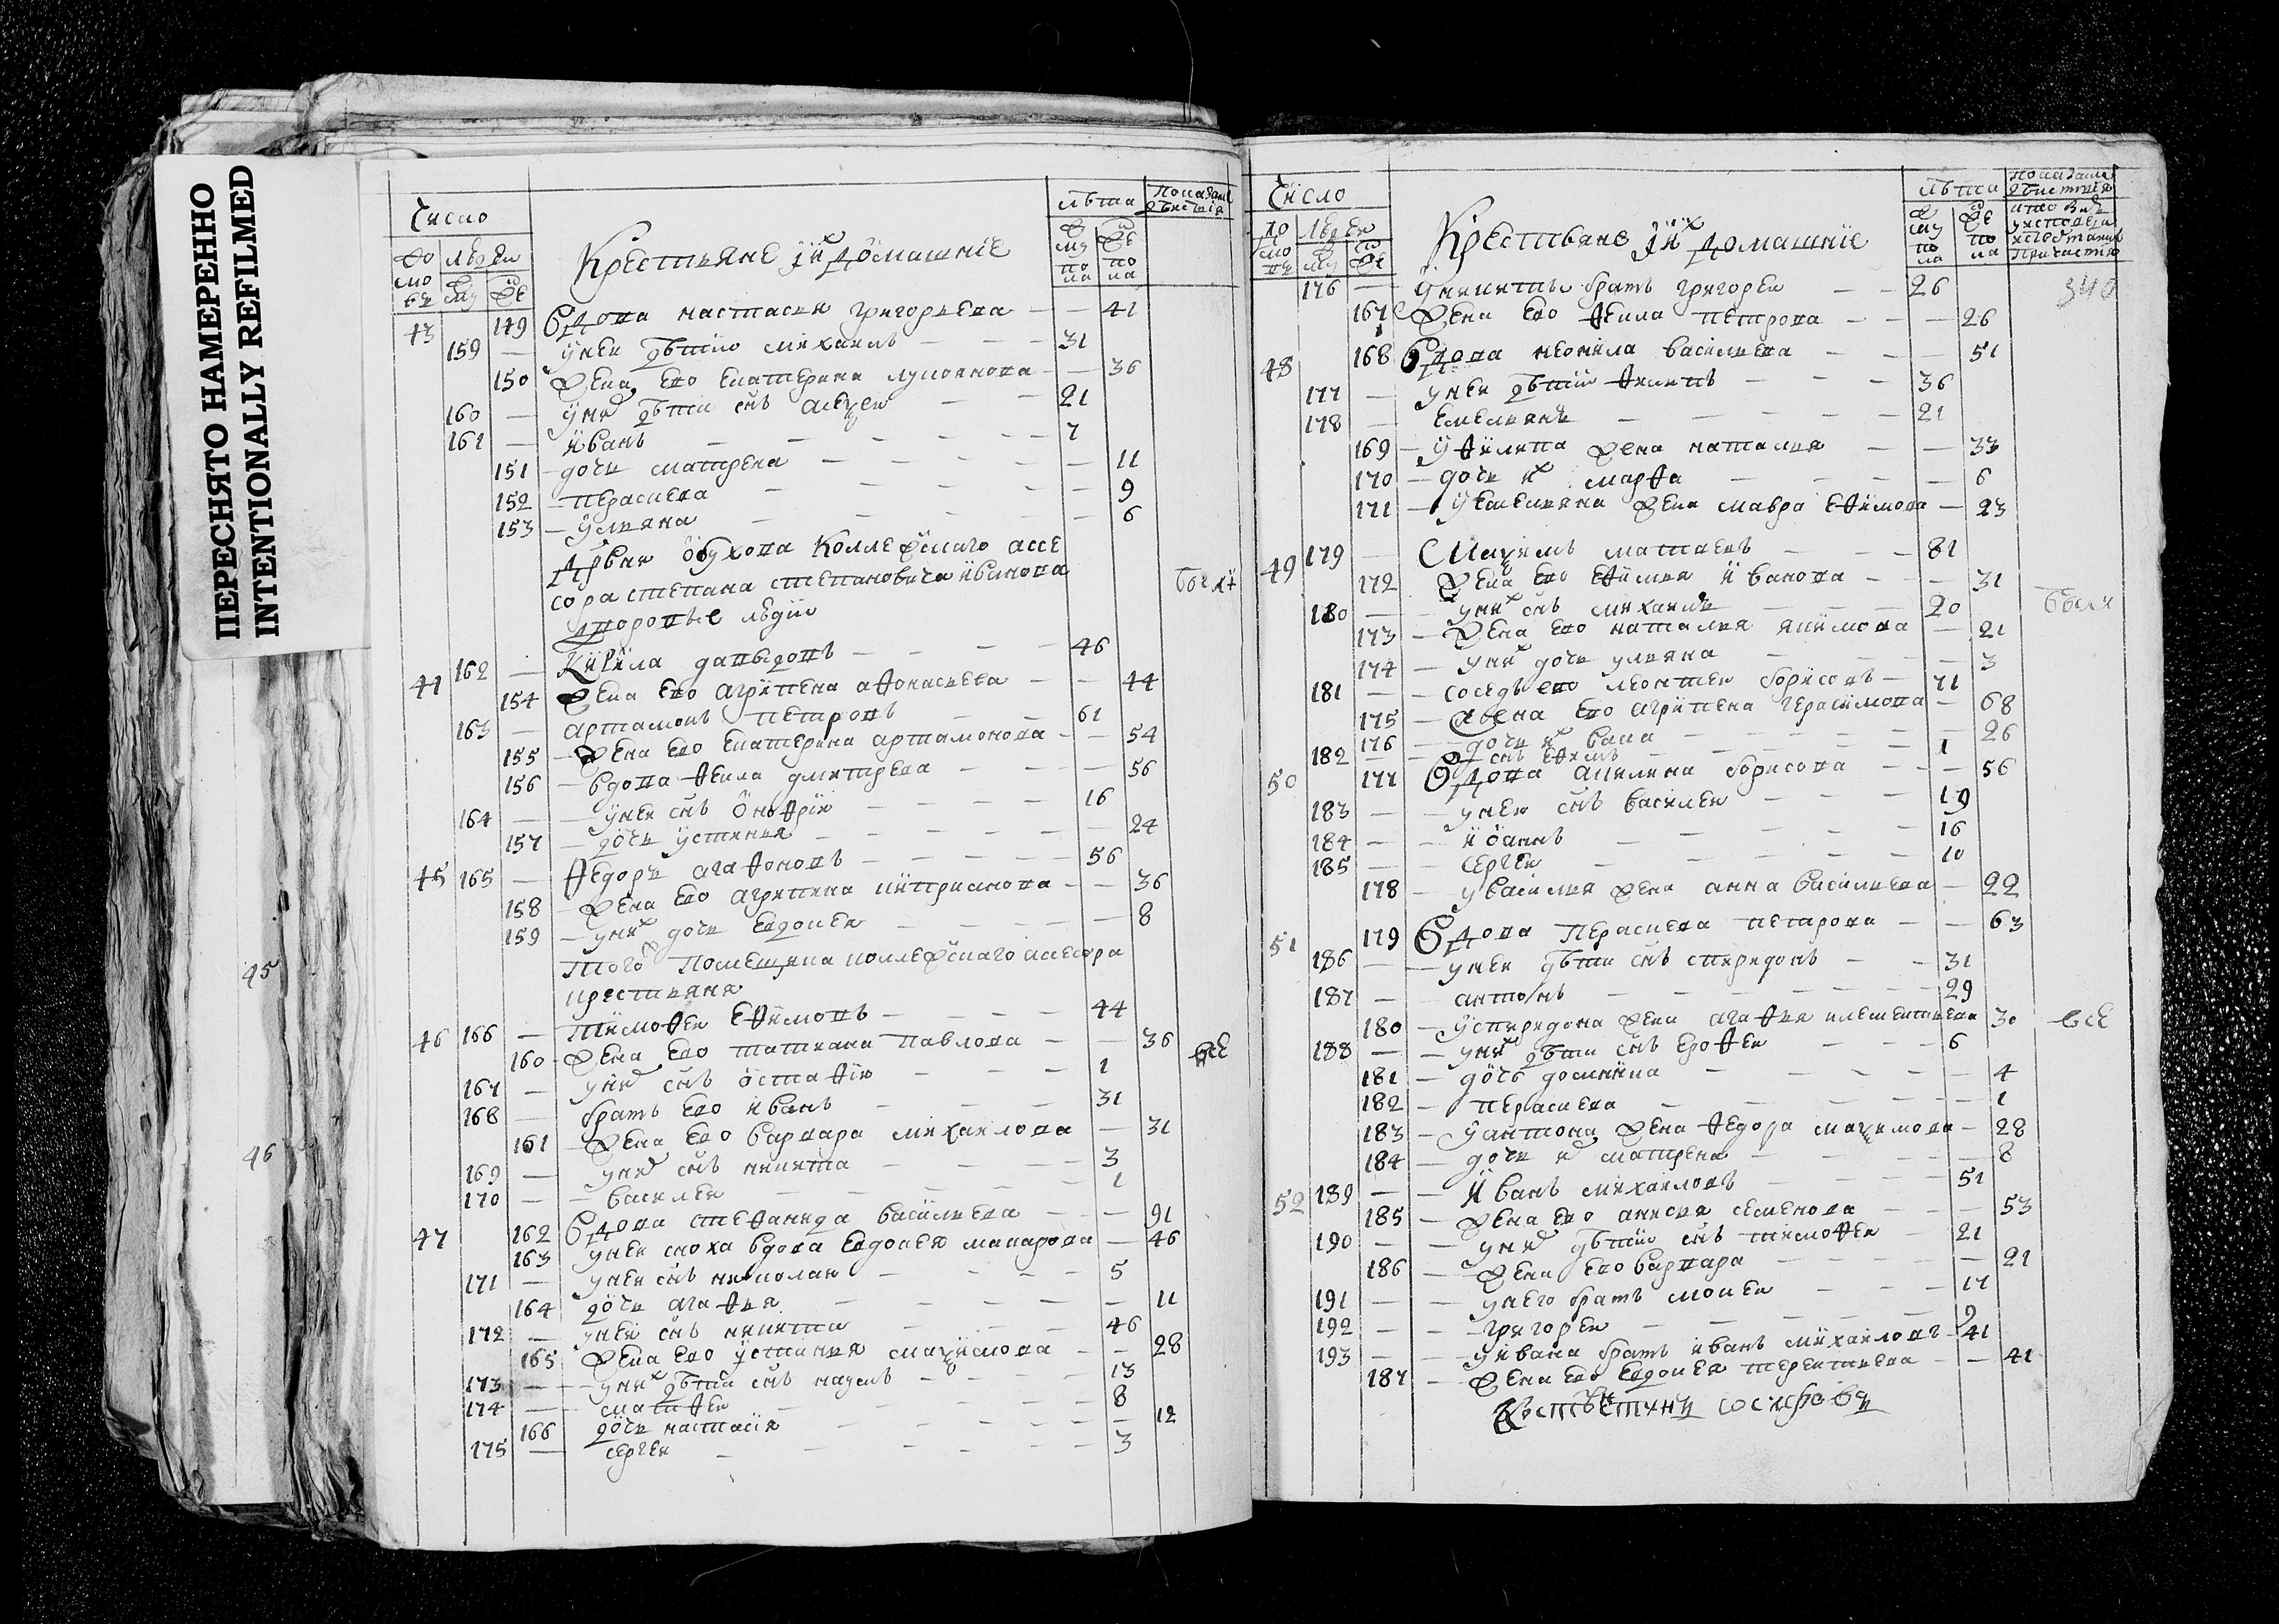 ПЕРЕСНЯТО НАМЕРЕННО
INTENTIONALLY REFILMED
45
46
Число
лѣта
показание
До
людеи
Крестьяне їихъ домашние
43 149 Вдова настасья григорьева — — 41
159 — унеи дѣти михаилъ — — — 31
150 жена ево екатерина лупоянова — — 36
160 — унихъ дѣти снъ алеѯеи — — 21
161 — иванъ — — — 7
151 — дочь матрена — — — 11
152 — параскева — — — 9
153 — ульяна — — — 6
Дрвня обухова коллежскаго ассе
сора степана степановича иванова
дворовые люди
были
44 162 — Кирила давыдовъ — — — 46
154 жена ево агрипена афонасьева — — 44
163 — артамонъ петровъ — — 61
155 — жена ево екатерина артамонова — — 54
156 — вдова фекла дмитрева — — — 56
164 — унеи снъ онофріи — — — 16
157 — дочь устинья — — — 24
45 165 — федоръ агафоновъ — — — 56
158 — жена ево агрипена киприанова — — 36
159 — унихъ дочь евдокея — — — 8
того помещика коллежскаго асесора
крестьяня
46 166 — тимофеи ефимовъ — — — 44
160 — жена ево татиана павлова — — 36
всѣ
167 — унихъ снъ остафіи — — — 1
168 — братъ ево иванъ — — — 31
161 — жена ево варвара михаилова — 31
169 — унихъ снъ никита — — — 3
170 — — василеи — — — 1
47 162 Вдова стефанида васильева — — 91
163 унеи сноха вдова евдокея макарова — 46
171 — унеи снъ николаи — — — 5
164 дочь агафья — — — 11
172 — унеи снъ никита — — — 46
165 жена ево устинья маѯимова — — 28
173 — — унихъ дѣти снъ наумъ — — — 13
174 — — матфеи — — — 8
166 дочь настасія — — — 12
175 — сергеи — — — 3
Число
лѣта
Крестьяне їихъ домашніе
340
176 — уникиты братъ григореи — — 26
167 жена ево фекла петрова — — — 26
48 168 Вдова неонила васильева — — — 51
177 — унеи дѣти филипъ — — — 36
178 — емельянъ — — — 21
169 — уфилипа жена наталья — — 33
170 — дочь ихъ марфа — — — 6
171 — уемельяна жена мавра ефимова — 23
49 179 — Маѯимъ матвеевъ — — — 81
172 жена ево ефимья иванова — — — 31
180 — — унихъ снъ михаилъ — — — 20
были
173 — жена ево наталья якимова — 21
174 — унихъ дочь ульяна — — — 3
181 — — соседъ ево леонтеи борисовъ — 71
175 — жена ево агрипена герасимова — 68
176 — дочь ихъ васа — — — 26
182 — снъ ефимъ — — — 1
50 177 Вдова акилина борисова — — — 56
183 — — унеи снъ василеи — — — 19
184 — — иоаннъ — — — 16
185 — сергеи — — — 10
178 — увасилья жена анна васильева — 22
51 179 Вдова Параскева петрова — — 63
186 — — унеи дѣти снъ спиридонъ — — 31
187 — антонъ — — — 29
180 — успиридона жена агафья клементьева 30
всѣ
188 — — унихъ дѣти снъ ерофеи — — 6
181 — дочь домникиа — — — 4
182 — параскева — — — 1
183 — уантона жена федора маѯимова — 28
184 — дочь их матрена — — — 8
52 189 — — Иванъ михаиловъ — — — 51
185 — жена ево анисья семенова — — 53
190 — — унихъ дѣти снъ тимофеи — 21
186 — жена ево варвара — — — 21
191 — — унего братъ мокеи — — 17
192 — — григореи — — — 9
193 — — уивана братъ иванъ михаиловъ — 41
187 — жена ево евдокея терентьева — — 41